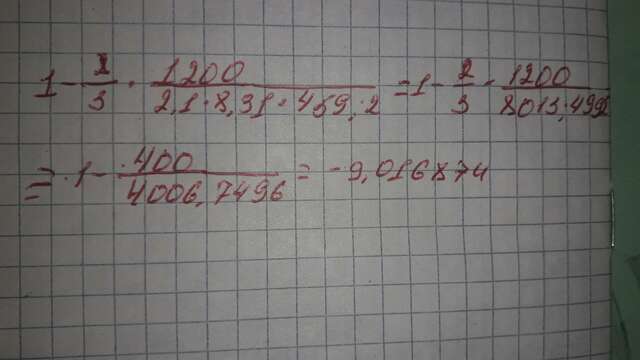 1 - 2/3 · 1200/(2,1 · 8,31 · 459,2) = 1 - 2/3 · 1200/8013,4992
= · 1 - 400/4006,7496 = -9,016874